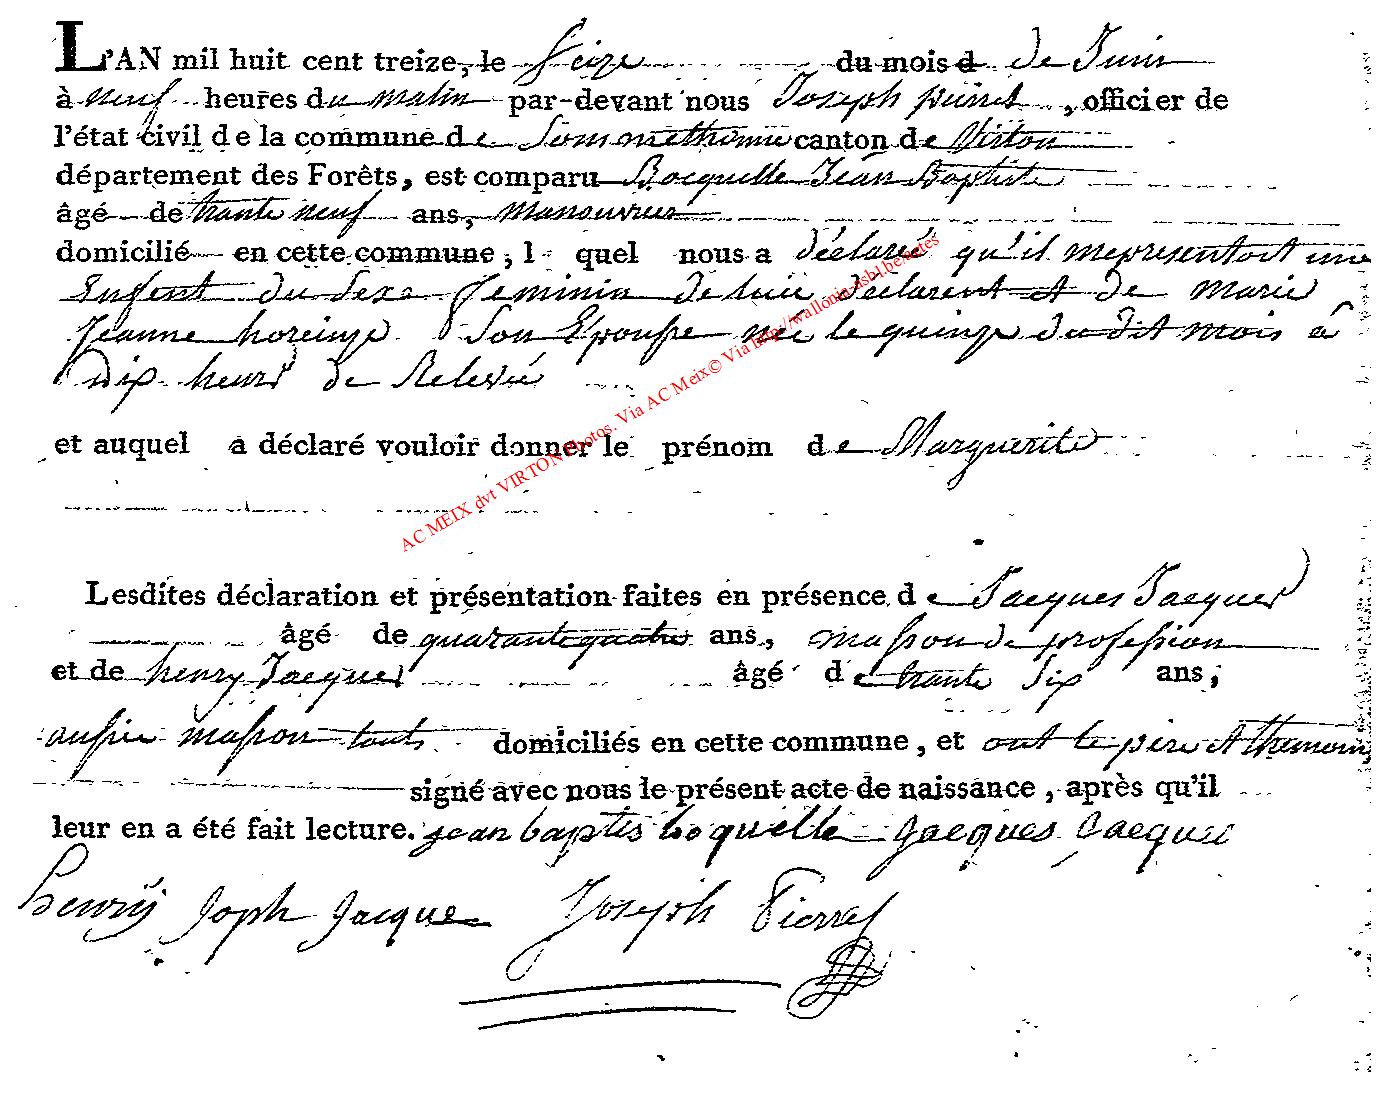 L'AN mil huit cent treize, le seize du mois d de Juin
à neuf heures du matin par-devant nous Joseph pierret, officier de
l'état civil de la commune de Sommethonne canton de Virton
département des Forêts, est comparu Bocquelle Jean Baptiste
âgé de trante neuf ans, Manouvrier
domicilié en cette commune, l quel nous a déclaré qu'il me presentoit une
Enfent du sexe feminin de luii declarent et de Marie
Jeanne horeinge Son Epousse née le quinze du dit mois à
Dix heurs de Relevé
et auquel a déclaré vouloir donner le prénom de Marguerite
Lesdites déclaration et présentation faites en présence de Jacques Jacques
âgé de quarante quatre ans, masson de profession
et de henry Jacques âgé de trante six ans,
aussie masson touts domiciliés en cette commune, et ont le père et themoin
signé avec nous le présent acte de naissance, après qu'il
leur en a été fait lecture. jean baptis boquille jacques jacque
henrÿ joph jacque Joseph Pierret
AC MEIX dvt VIRTON Photos. Via AC Meix© Via http://wallonia-asbl.be/actes